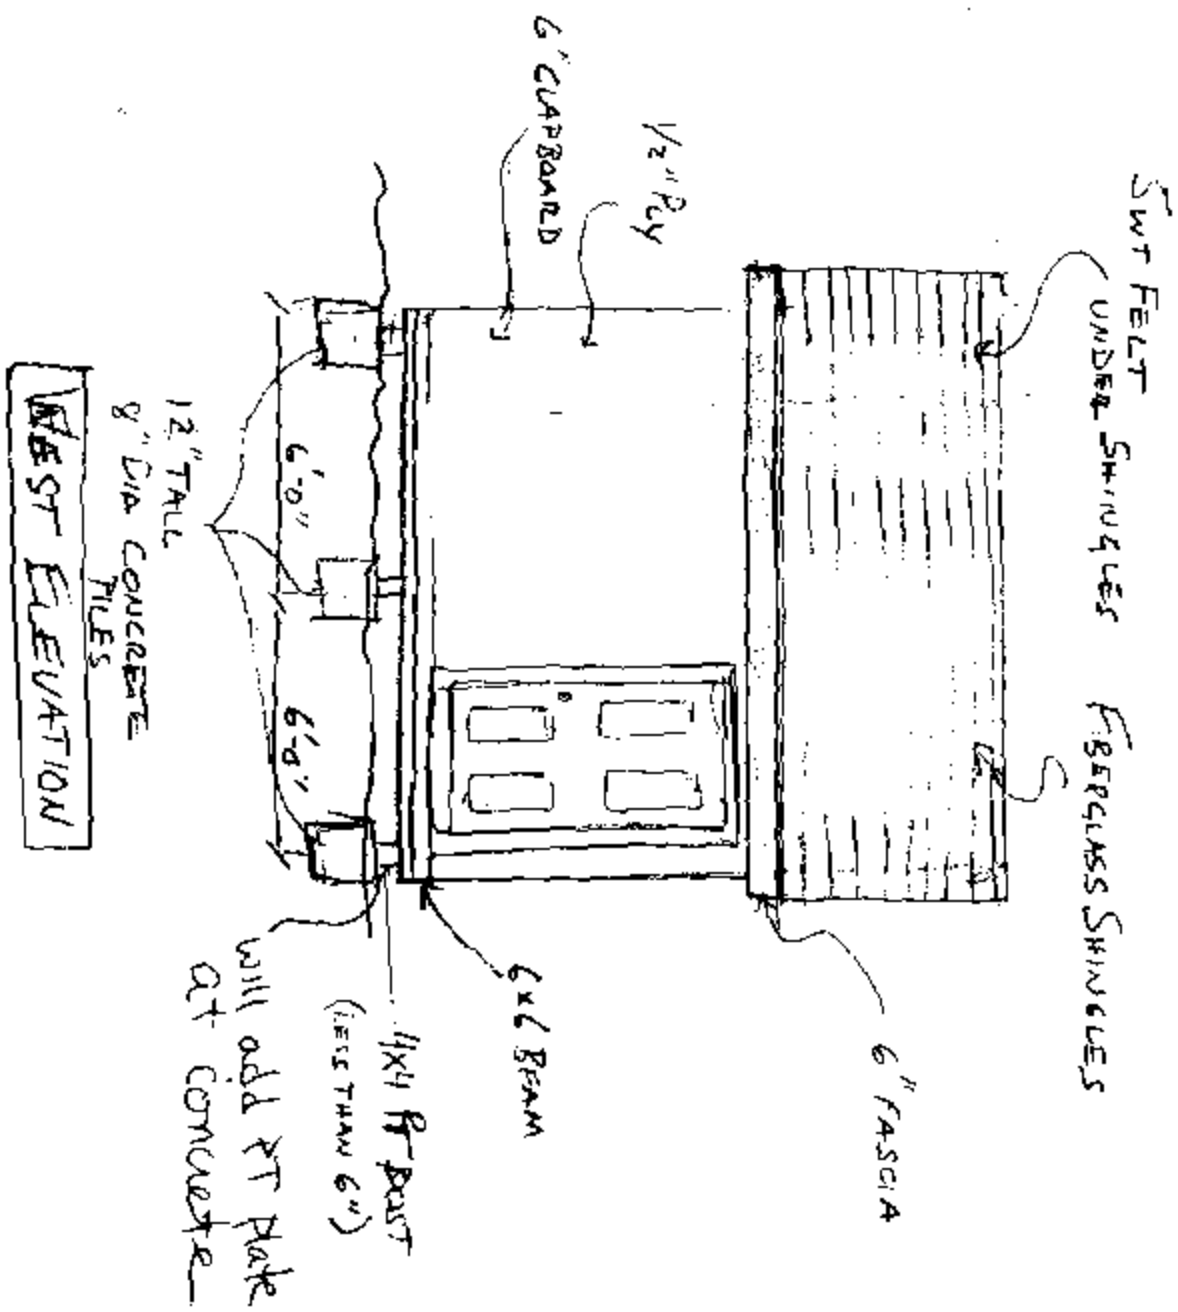 5WT FELT
UNDER SHINGLES
FIBERGLASS SHINGLES
6" FASCIA
1/2" PLY
6" CLAPBOARD
6x6 BEAM
4x4 PT POST
(LESS THAN 6")
will add PT plate
at concrete
6'-0"
6'-0"
12" TALL
8" DIA CONCRETE
PILES
WEST ELEVATION